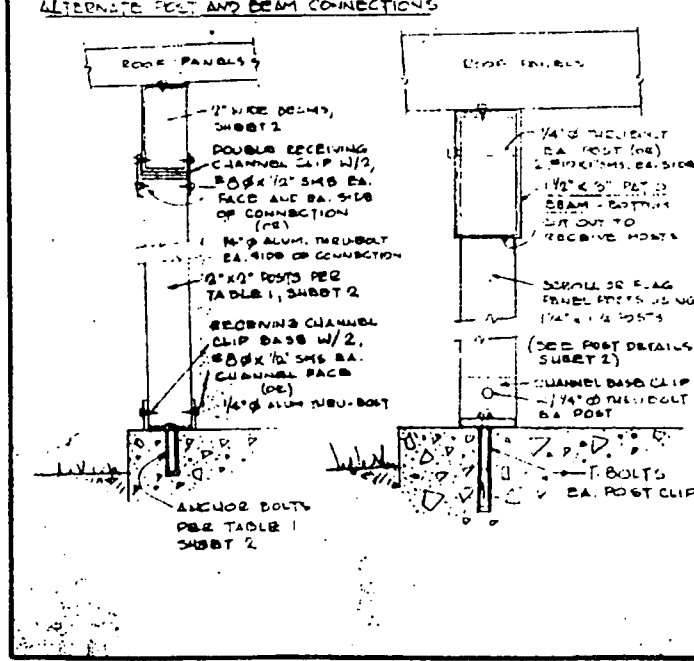 ALTERNATE POST AND BEAM CONNECTIONS
ROOF PANELS
2" WIDE BEAMS,
SHEET 2
DOUBLE RECEIVING
CHANNEL CLIP W/2,
#8 Ø x 1/2" SMS EA.
FACE AND EA. SIDE
OF CONNECTION
(OR)
1/4" Ø ALUM. THRU-BOLT
EA. SIDE OF CONNECTION
2" x 2" POSTS PER
TABLE 1, SHEET 2
RECEIVING CHANNEL
CLIP BASE W/2,
#8 Ø x 1/2" SMS EA.
CHANNEL FACE
(OR)
1/4" Ø ALUM THRU-BOLT
ANCHOR BOLTS
PER TABLE 1
SHEET 2
ROOF PANELS
1/4" Ø THRU-BOLT
EA. POST (OR)
SMS, EA. SIDE
1 1/2" x 3" PATIO
BEAM - BOTTOM
CUT OUT TO
RECEIVE POSTS
SCROLL OR FLAG
PANEL POSTS USING
POSTS
(SEE POST DETAILS
SHEET 2)
CHANNEL BASE CLIP
1/4" Ø THRU-BOLT
EA POST
BOLTS
EA. POST CLIP